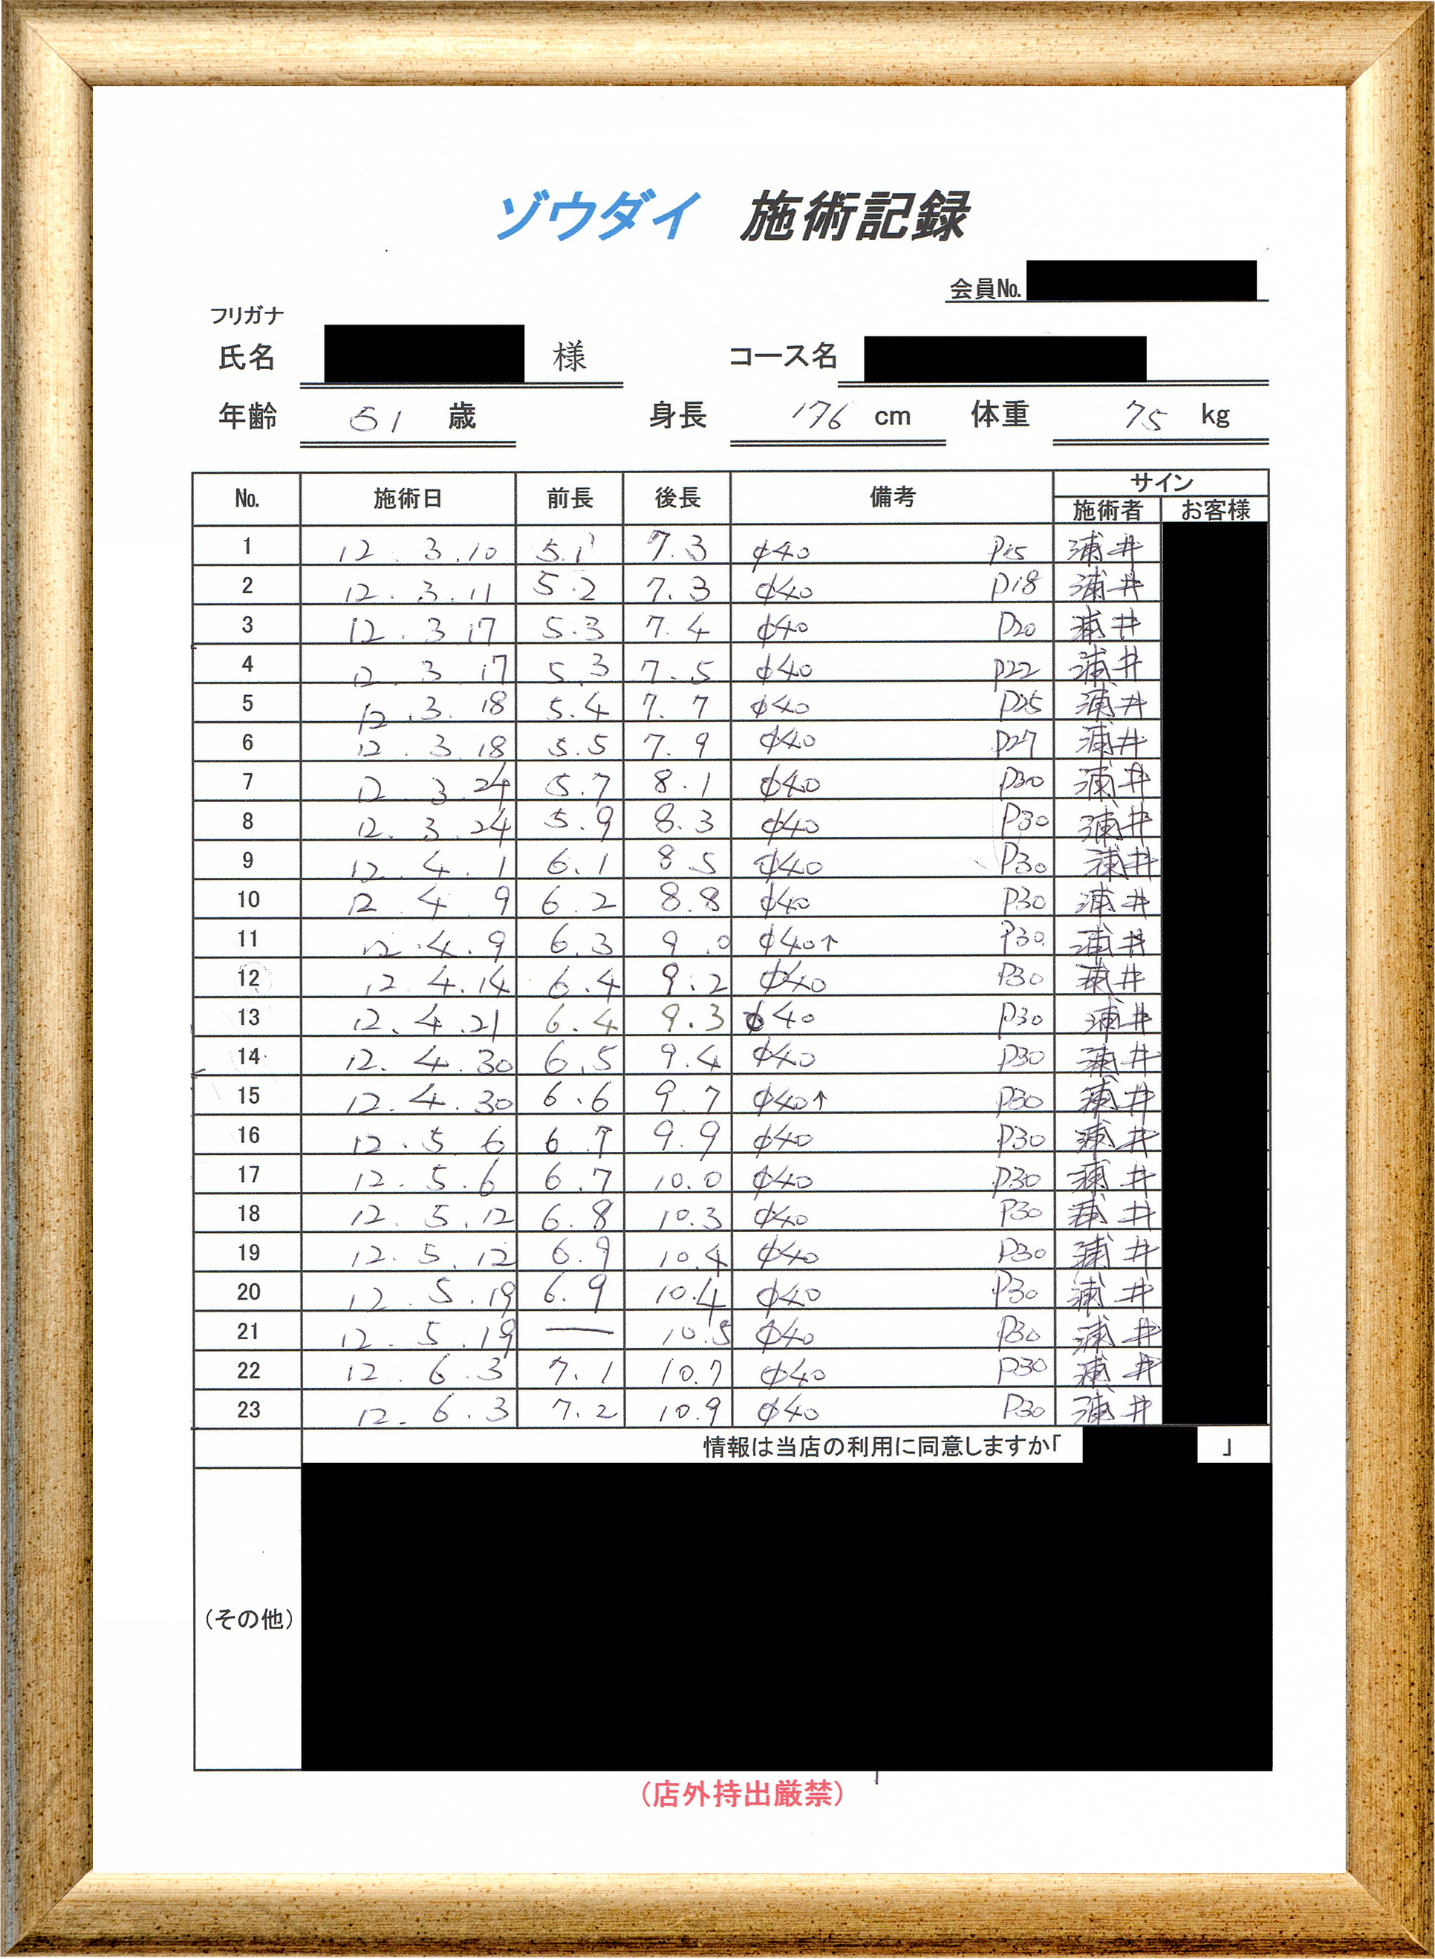 ゾウダイ 施術記録
会員No.
フリガナ
氏名 様 コース名
年齢 51 歳 身長 176 cm 体重 75 kg
No. 施術日 前長 後長 備考 サイン
施術者 お客様
1 12. 3.10 5.1 7.3 φ40 P15 浦井
2 12. 3. 11 5.2 7.3 φ40 P18 浦井
3 12. 3 17 5.3 7.4 φ40 P20 浦井
4 12. 3 17 5.3 7.5 φ40 P22 浦井
5 12. 3. 18 5.4 7.7 φ40 P25 浦井
6 12. 3. 18 5.5 7.9 φ40 P27 浦井
7 12 3. 24 5.7 8.1 φ40 P30 浦井
8 12. 3. 24 5.9 8.3 φ40 P30 浦井
9 12. 4. 1 6.1 8.5 φ40 P30 浦井
10 12. 4. 9 6.2 8.8 φ40 P30 浦井
11 12. 4. 9 6.3 9.0 φ40↑ P30 浦井
12 12. 4.14 6.4 9.2 φ40 P30 浦井
13 12. 4.21 6.4 9.3 φ40 P30 浦井
14 12. 4. 30 6.5 9.4 φ40 P30 浦井
15 12. 4. 30 6.6 9.7 φ40↑ P30 浦井
16 12. 5. 6 6.7 9.9 φ40 P30 浦井
17 12. 5. 6 6.7 10.0 φ40 P30 浦井
18 12. 5. 12 6.8 10.3 φ40 P30 浦井
19 12. 5. 12 6.9 10.4 φ40 P30 浦井
20 12. 5. 19 6.9 10.4 φ40 P30 浦井
21 12. 5. 19 — 10.5 φ40 P30 浦井
22 12. 6. 3 7.1 10.7 φ40 P30 浦井
23 12. 6. 3 7.2 10.9 φ40 P30 浦井
情報は当店の利用に同意しますか「 」
(その他)
(店外持出厳禁)